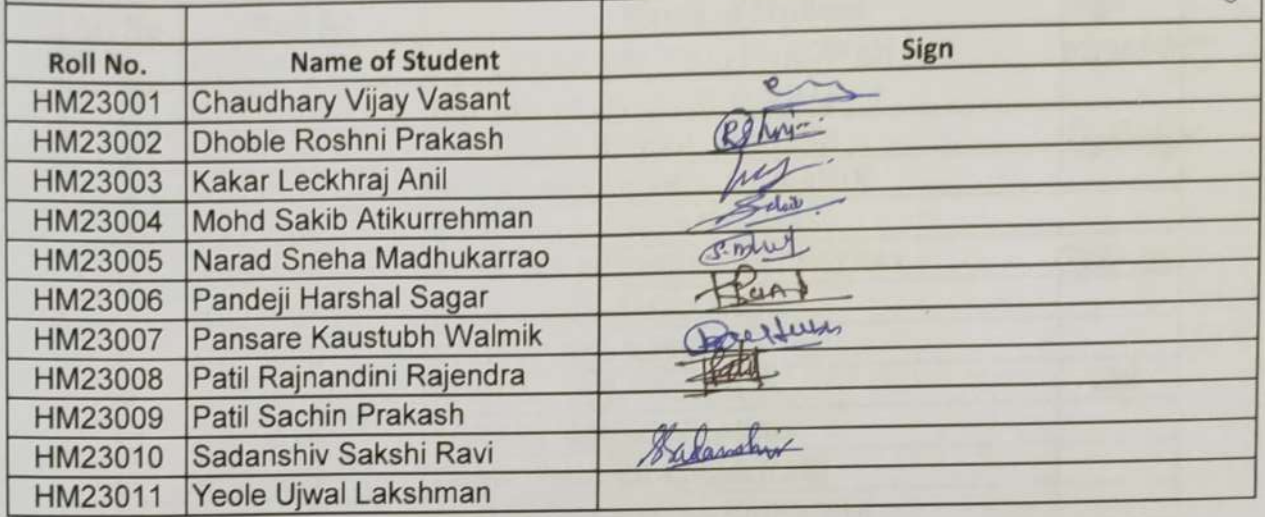 Roll No. Name of Student Sign
HM23001 Chaudhary Vijay Vasant
HM23002 Dhoble Roshni Prakash
HM23003 Kakar Leckhraj Anil
HM23004 Mohd Sakib Atikurrehman
HM23005 Narad Sneha Madhukarrao
HM23006 Pandeji Harshal Sagar
HM23007 Pansare Kaustubh Walmik
HM23008 Patil Rajnandini Rajendra Patil
HM23009 Patil Sachin Prakash
HM23010 Sadanshiv Sakshi Ravi Sadanshiv
HM23011 Yeole Ujwal Lakshman